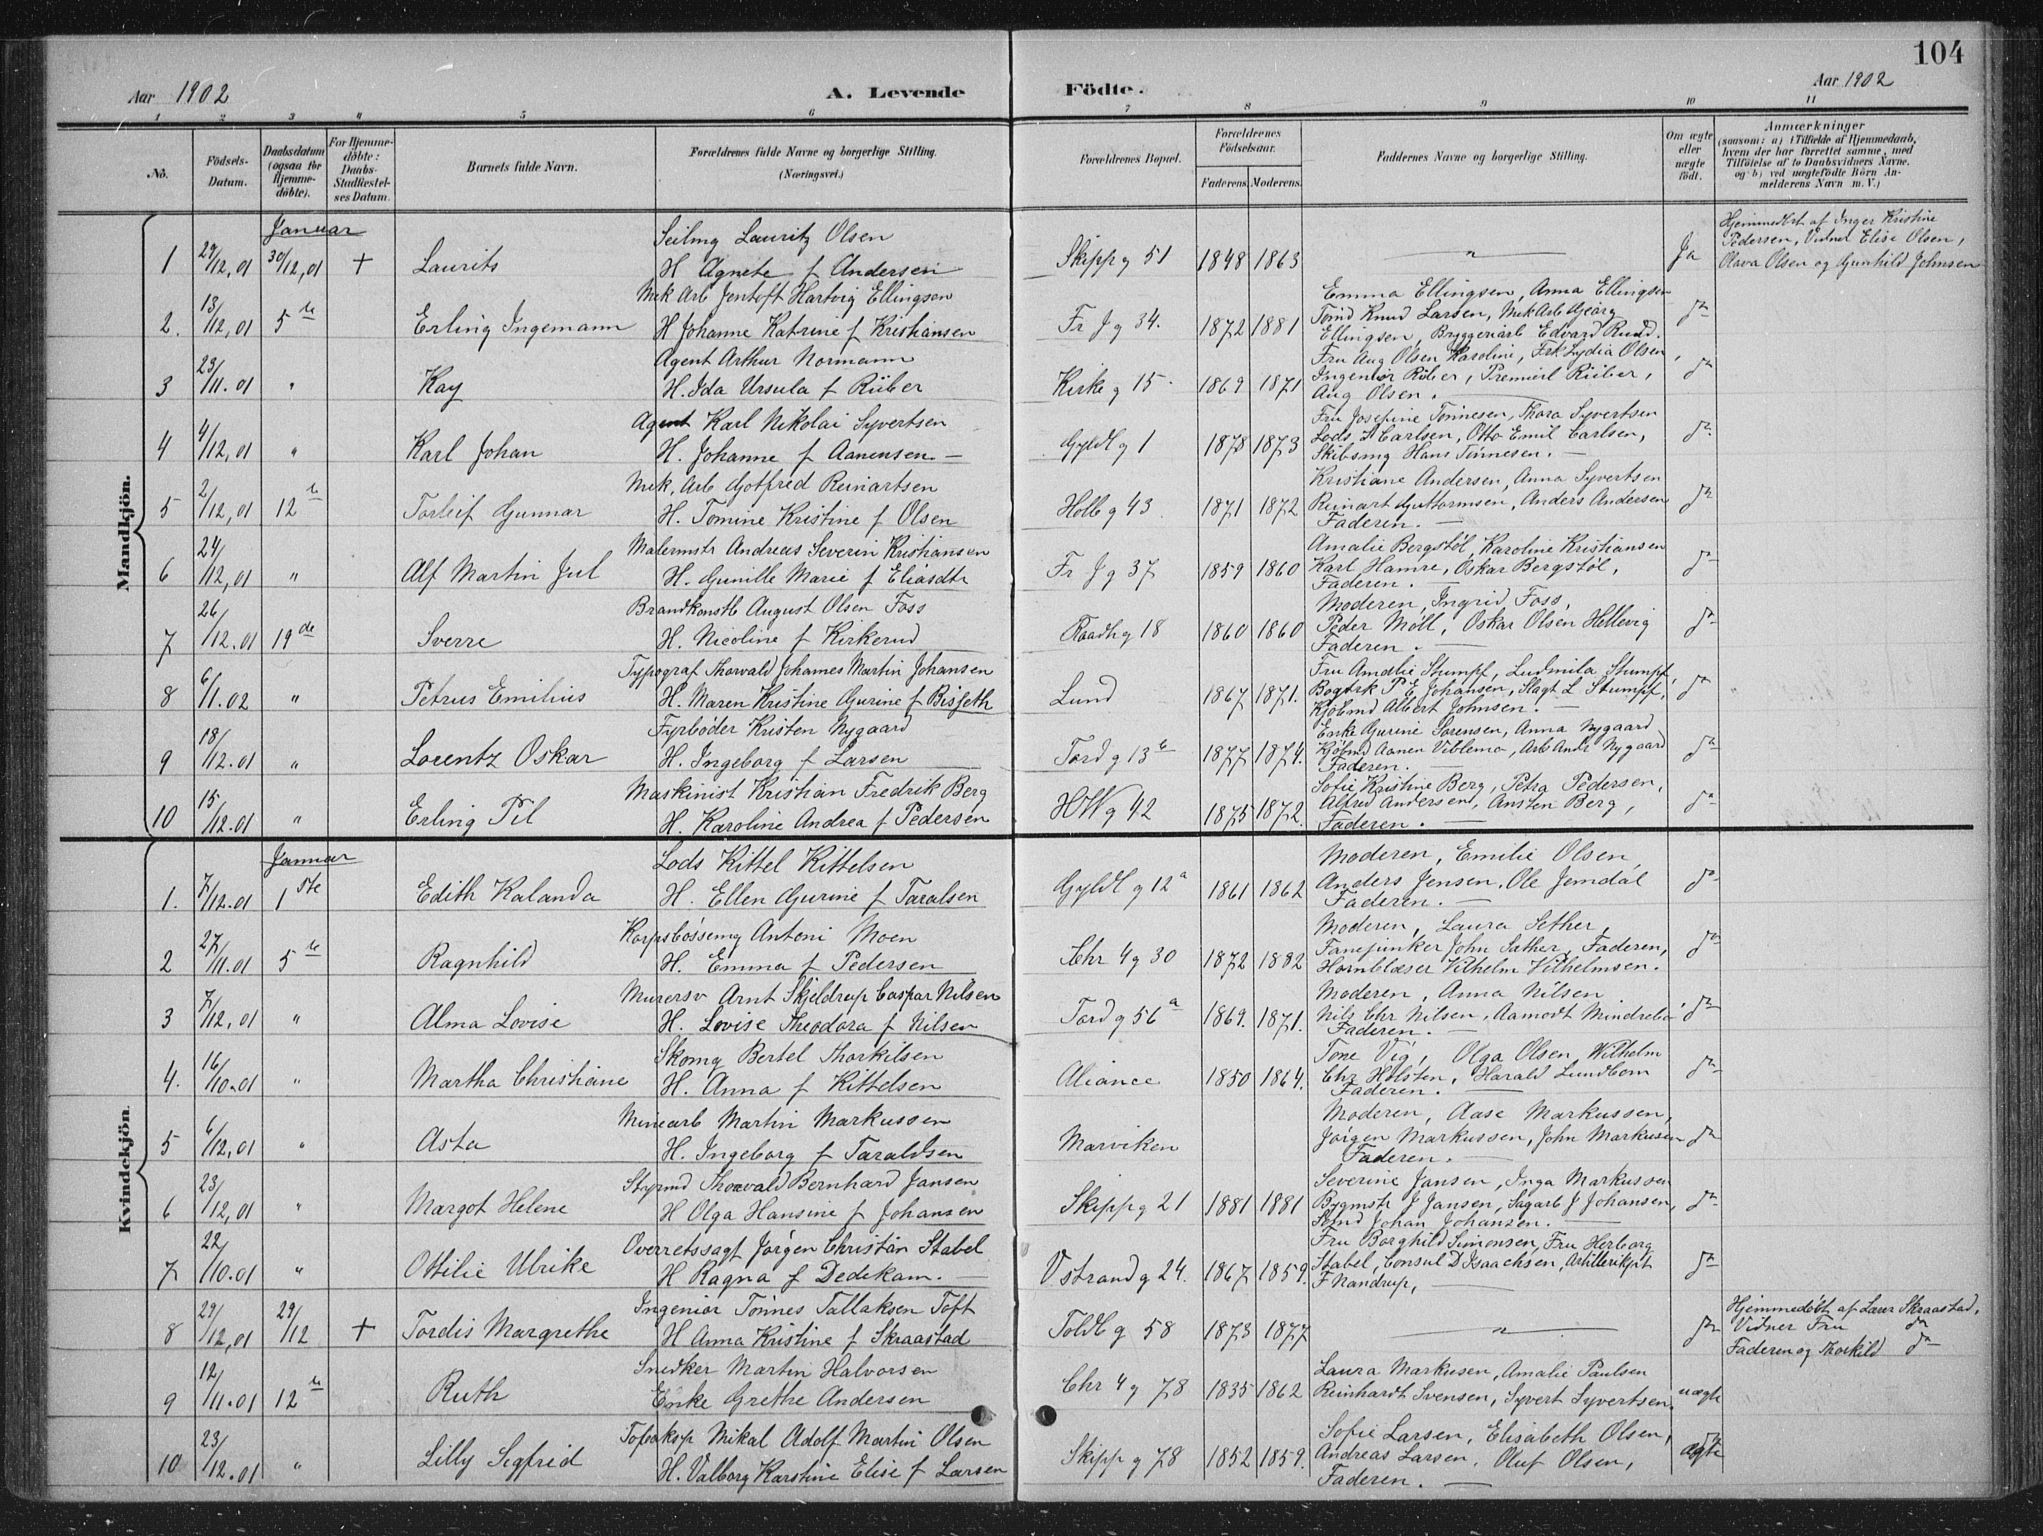 104
Aar 1902
A. Levende
Födte.
Aar 1902
1 2 3 4 5 6 7 8 9 10 11
No.
Födsels-Datum.
Daabsdatum (ogsaa for Hjemme-döbte).
For Hjemme-döbte: Daabs-Stadfæstel-ses Datum.
Barnets fulde Navn.
Forældrenes fulde Navne og borgerlige Stilling. (Næringsvei.)
Forældrenes Bopæl.
Forældrenes Födselsaar.
Faderens. Moderens.
Faddernes Navne og borgerlige Stilling.
Om ægte eller uægte födt.
Anmærkninger
(saasom: a) i Tilfælde af Hjemmedaab, hvem der har forrettet samme, med Tilföielse af to Daabsvidners Navne. og b) ved uægtefödte Börn An-melderens Navn m. V.)
Mandkjön.
Januar
1 29/12,01 30/12,01 + Laurits
Seilmg Lauritz Olsen
H Agnete f Andersen
Skippg 51 1848 1863 — " — Ja
Hjemmedöbt af Inger Kristine
Pedersen, Vidner Elise Olsen,
Olava Olsen og Gunhild Johnsen
2. 13/12,01 5te Erling Ingemann
Mek Arb Jentoft Hartvig Ellingsen
H Johanne Katrine f Kristiansen
Fr J g 34. 1872 1881
Emma Ellingsen, Anna Ellingsen
Tömd Knud Larsen, Mek Arb Georg
Ellingsen, Bryggeriarb Edvard Rudd.
3 23/11.01 " Kay
Agent Arthur Normann
H. Ida Ursula f Rüber
Kirkeg 15. 1869 1871
Fru Aug Olsen Karoline, Frk Lydia Olsen,
Ingeniör Rüber, Premierl Rüber,
Aug Olsen.
4 4/12,01 " Karl Johan
Agent Karl Nikolai Syvertsen
H. Johanne f Aanensen —
Gyldl g 1 1878 1873
Fru Josefine Tönnesen, Thora Syvertsen
Lods A Carlsen, Otto Emil Carlsen,
Skibsmg Hans Tönnesen. —
5 2/12,01 12te Torleif Gunnar
Mek, Arb Gotfred Reinartsen
H. Tomine Kristine f Olsen
Holb g 43 1871 1872
Kristiane Andersen, Anna Syvertsen
Reinart Guttormsen, Anders Andersen
Faderen. —
6 24/12,01 " Alf Martin Jul
Malermstr Andreas Severin Kristiansen
H. Gunille Marie f Eliasdtr
Fr J g 37 1859 1860
Amalie Bergstöl, Karoline Kristiansen
Karl Hamre, Oskar Bergstöl,
Faderen. —
7 26/12.01 19de Sverre
Brandkonstb August Olsen Foss
H. Nicoline f Kirkerud
Raadhg 18 1860 1860
Moderen, Ingrid Foss,
Peder Möll, Oskar Olsen Hellevig
Faderen. —
8 6/1.02 " Petrus Emilius
Typograf Thorvald Johames Martin Johansen
H. Maren Kristine Gurine f Bisseth
Lund 1867 1871.
Fru Amalie Stumpf, Ludmila Stumpf,
Bogtrk P E Johansen, Slagt L Stumpf,
Kjöbmd Albert Johnsen. —
9 18/12.01 " Lorentz Oskar
Fyrböder Kristen Nygaard
H. Ingeborg f Larsen
Tord g 13b 1877 1874.
Enke Gurine Sörensen, Anna Nygaard
Kjöbmd Aanen Viblemo, Arb Andr Nygaard
Faderen. —
10 15/12.01 " Erling Til
Maskinist Kristian Fredrik Berg
H. Karoline Andrea f Pedersen
Holb g 42 1875 1872.
Sofie Kristine Berg, Petra Pedersen,
Alfred Andersen, Ansten Berg,
Faderen. —
Kvindekjön.
Januar
1. 7/12.01 1ste Edith Kalanda
Lods Kittel Kittelsen
H. Ellen Gurine f Taralsen
Gyldl g 12a 1861 1862
Moderen, Emilie Olsen
Anders Jensen, Ole Jemdal
Faderen. —
2 27/11.01 5te Ragnhild
Korpsbössemg Antoni Moen
H. Emma f Pedersen
Chr 4 g 30 1872 1882
Moderen, Laura Sether,
Fanejunker John Sather, Faderen,
Hornblæser Vilhelm Vilhelmsen.
3 7/12,01 " Alma Lovise
Murersv Arnt Skjeldrup Caspar Nilsen
H. Lovise Theodora f Nilsen
Tord g 56a 1869. 1871.
Moderen, Anna Nilsen
Nils Chr Nilsen, Aamodt Mindrebö
Faderen. —
4. 16/10.01 " Martha Christiane
Skomg Bertel Thorkilsen
H. Anna f Kittelsen
Aliance 1850 1864.
Tone Vig, Olga Olsen Wilhelm
Chr Holsten, Harald Lundbom
Faderen. —
5 6/12,01 " Asta
Minearb Martin Markussen
H. Ingeborg f Taraldsen
Marviken
Moderen, Aase Markussen,
Jörgen Markussen, John Markusen
Faderen. —
6 23/12,01 " Margot Helene
Styrmd Thorvald Bernhard Jansen
H Olga Hansine f Johansen
Skippg 21 1881 1881
Severine Jansen, Inga Markussen
Bygmstr J Jansen, Sagarb J Johansen,
Sömd Johan Johansen. —
7 22/10.01 " Ottilie Ulrike
Overretssagf Jörgen Christian Stabel
H Ragna f Dedekam. —
V strand g 24. 1867 1859.
Fru Borghild Simonsen, Fru Herborg
Stabel, Consul D Isaachsen, Artillerikpt
F Nandrup,
8 29/12,01 29/12 + Tordis Margrethe
Ingeniör Tönnes Tallaksen Toft
H Anna Kristine f Skraastad
Toldb g 58 1873 1877 — " —
Hjemmedöbt af Laur Skraastad,
Vidner Fru do
Faderen og Thorkild do
9 12/11.01 12te Ruth
Snedker Martin Halvorsen
Enke Grethe Andersen
Chr 4 g 78 1835 1862
Laura Markusen, Amalie Paulsen
Reinhardt Svensen, Syvert Syvertsen. uægte
10 23/12.01 " Lilly Sigfrid
Tobaksp Mikal Adolf Martin Olsen
H. Valborg Karstine Elise f Larsen
Skipp g 78 1852 1859.
Sofie Larsen, Elisabeth Olsen,
Andreas Larsen, Oluf Olsen, ægte
Faderen. —